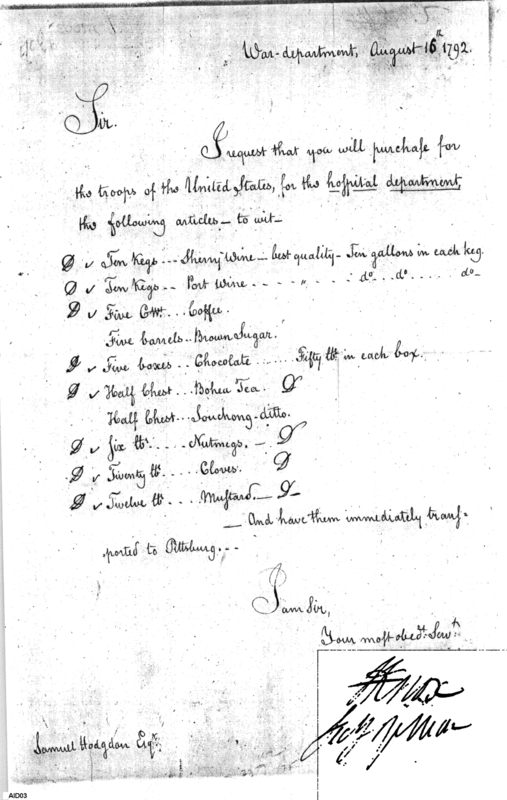 War-department, August 16th 1792.
Sir.
I request that you will purchase for
the troops of the United States, for the hospital department,
the following articles – to wit –
D ✓ Ten Kegs --- Sherry Wine – best quality – Ten gallons in each keg
D ✓ Ten Kegs -- Port Wine - - - - " - - - - do. . do. . . . . . do –
D ✓ Five Cwt. . . Coffee.
Five barrels . . Brown Sugar.
D ✓ Five boxes . . Chocolate . . . . . . Fifty lbs in each box.
D ✓ Half Chest . . . Bohea Tea. D
Half Chest . . . Souchong – ditto.
D ✓ Six lbs . . . . . Nutmegs. – D
D ✓ Twenty lbs . . . . . Cloves. D
D ✓ Twelve lbs . . . . Mustard. – D
– And have them immediately trans=
ported to Pittsburg. - -
I am Sir,
Your most obedt. Servt.
HKnox
Secy of War
Samuel Hodgdon Esqr.
AID03